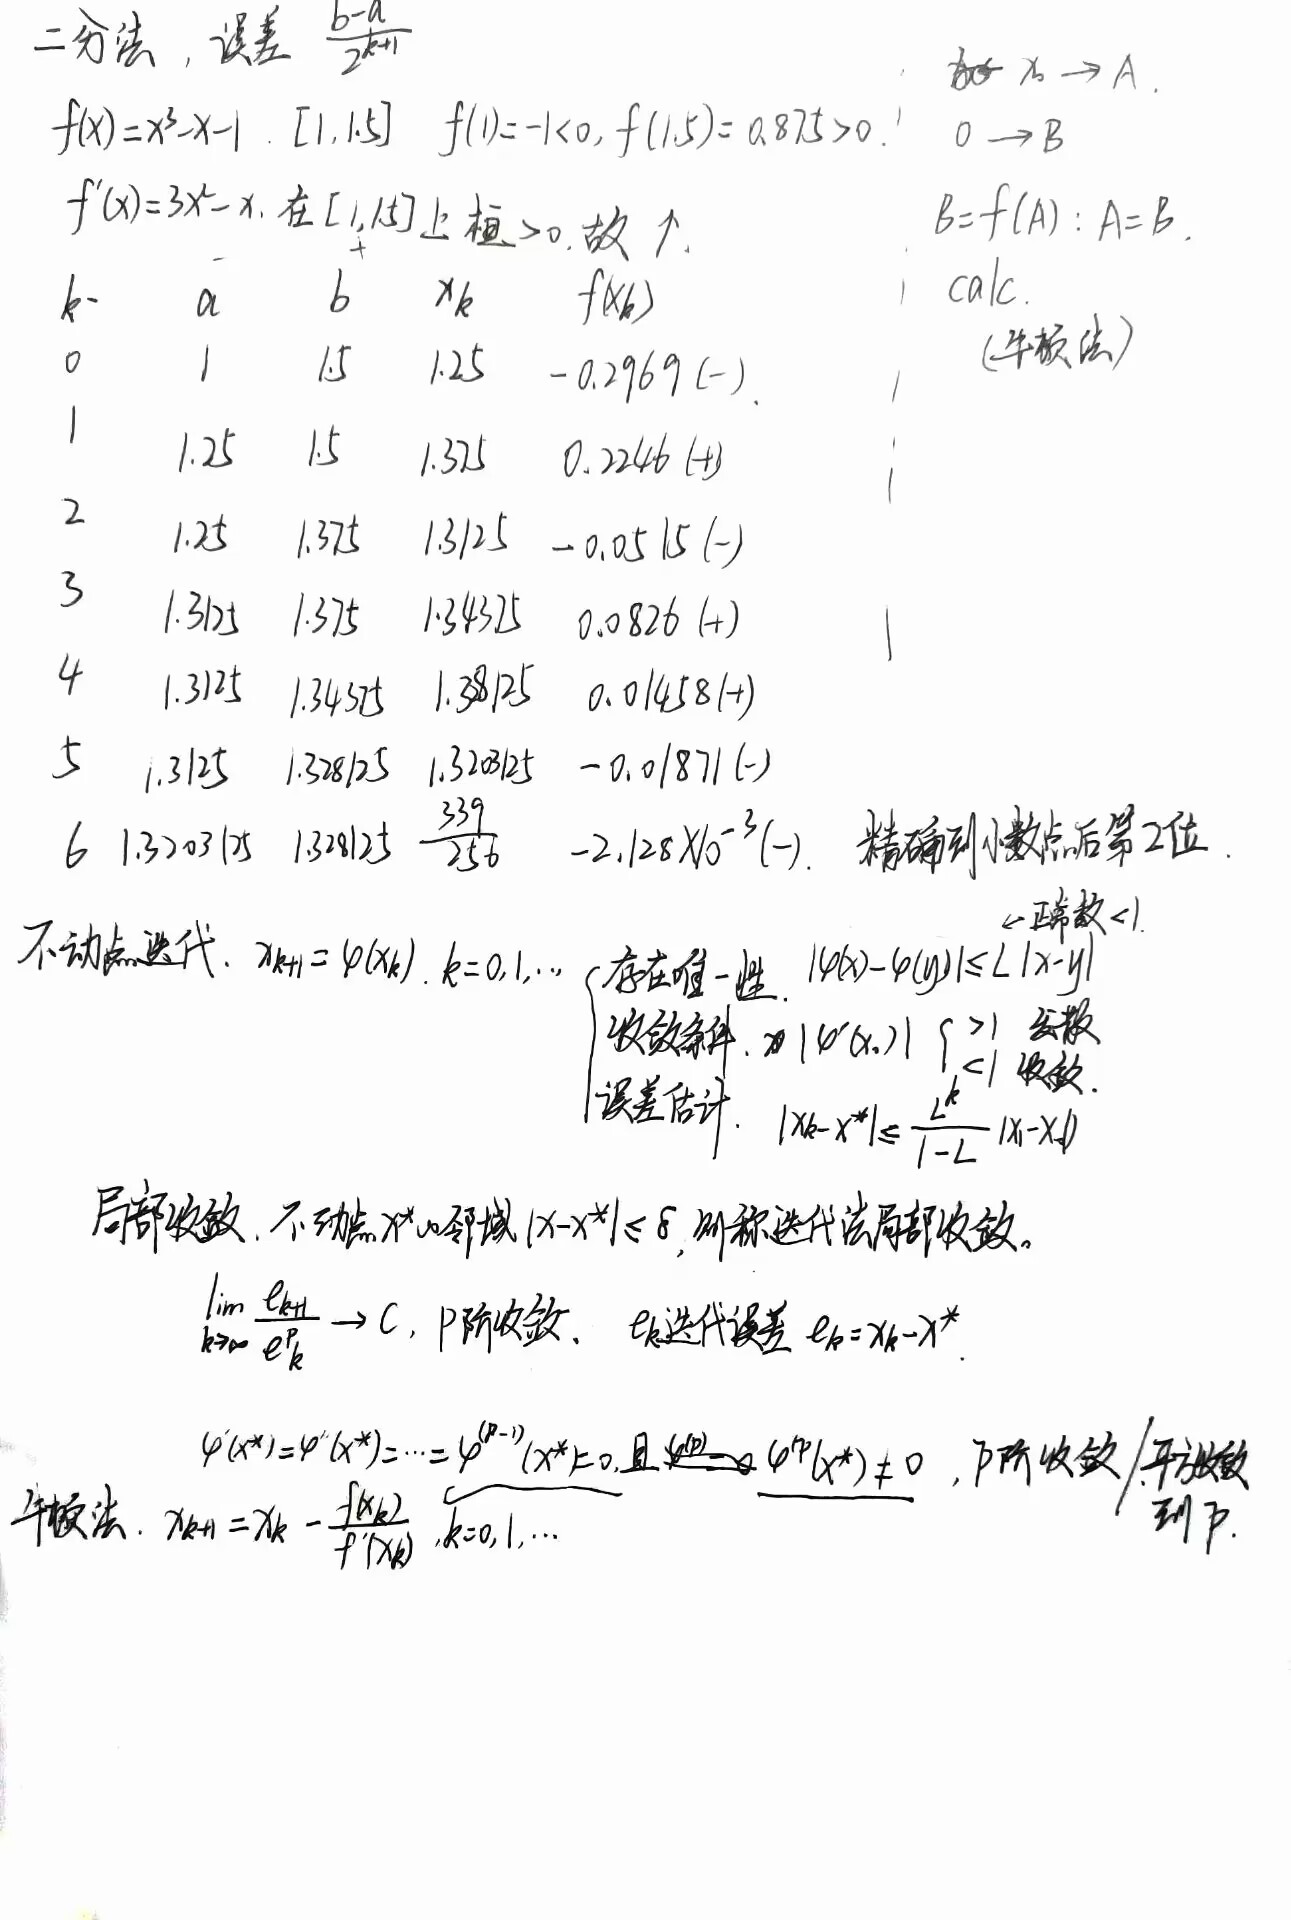 二分法, 误差 (b-a)/2^{k+1}
f(x)=x³-x-1. [1, 1.5] f(1)=-1<0, f(1.5)=0.875>0.
f'(x)=3x²-x. 在[1,1.5]上恒>0. 故↑.
k a b x_k f(x_k)
0 1 1.5 1.25 -0.2969(-).
1 1.25 1.5 1.375 0.2246(+)
2 1.25 1.375 1.3125 -0.0515(-)
3 1.3125 1.375 1.34375 0.0826(+)
4 1.3125 1.34375 1.38125 0.01458(+)
5 1.3125 1.328125 1.3203125 -0.01871(-)
6 1.3203125 1.328125 339/256 -2.128×10^{-3}(-). 精确到小数点后第2位.
x₀→A.
0→B
B=f(A):A=B.
calc.
(牛顿法)
不动点迭代. x_{k+1}=φ(x_k). k=0,1,…
←正常数<1.
存在唯一性. |φ(x)-φ(y)|≤L|x-y|
收敛条件. |φ'(x₀)| { >1 发散
<1 收敛.
误差估计. |x_k-x*|≤L^k/(1-L) |x₁-x₀|
局部收敛. 不动点x*的邻域|x-x*|≤δ, 则称迭代法局部收敛。
lim_{k→∞} e_{k+1}/e_k^p → C, p阶收敛. e_k迭代误差 e_k=x_k-x*.
φ'(x*)=φ''(x*)=…=φ^{(p-1)}(x*)=0. 且 φ^{(p)}(x*)≠0, p阶收敛/平方收敛
到p.
牛顿法. x_{k+1}=x_k-f(x_k)/f'(x_k), k=0,1,…